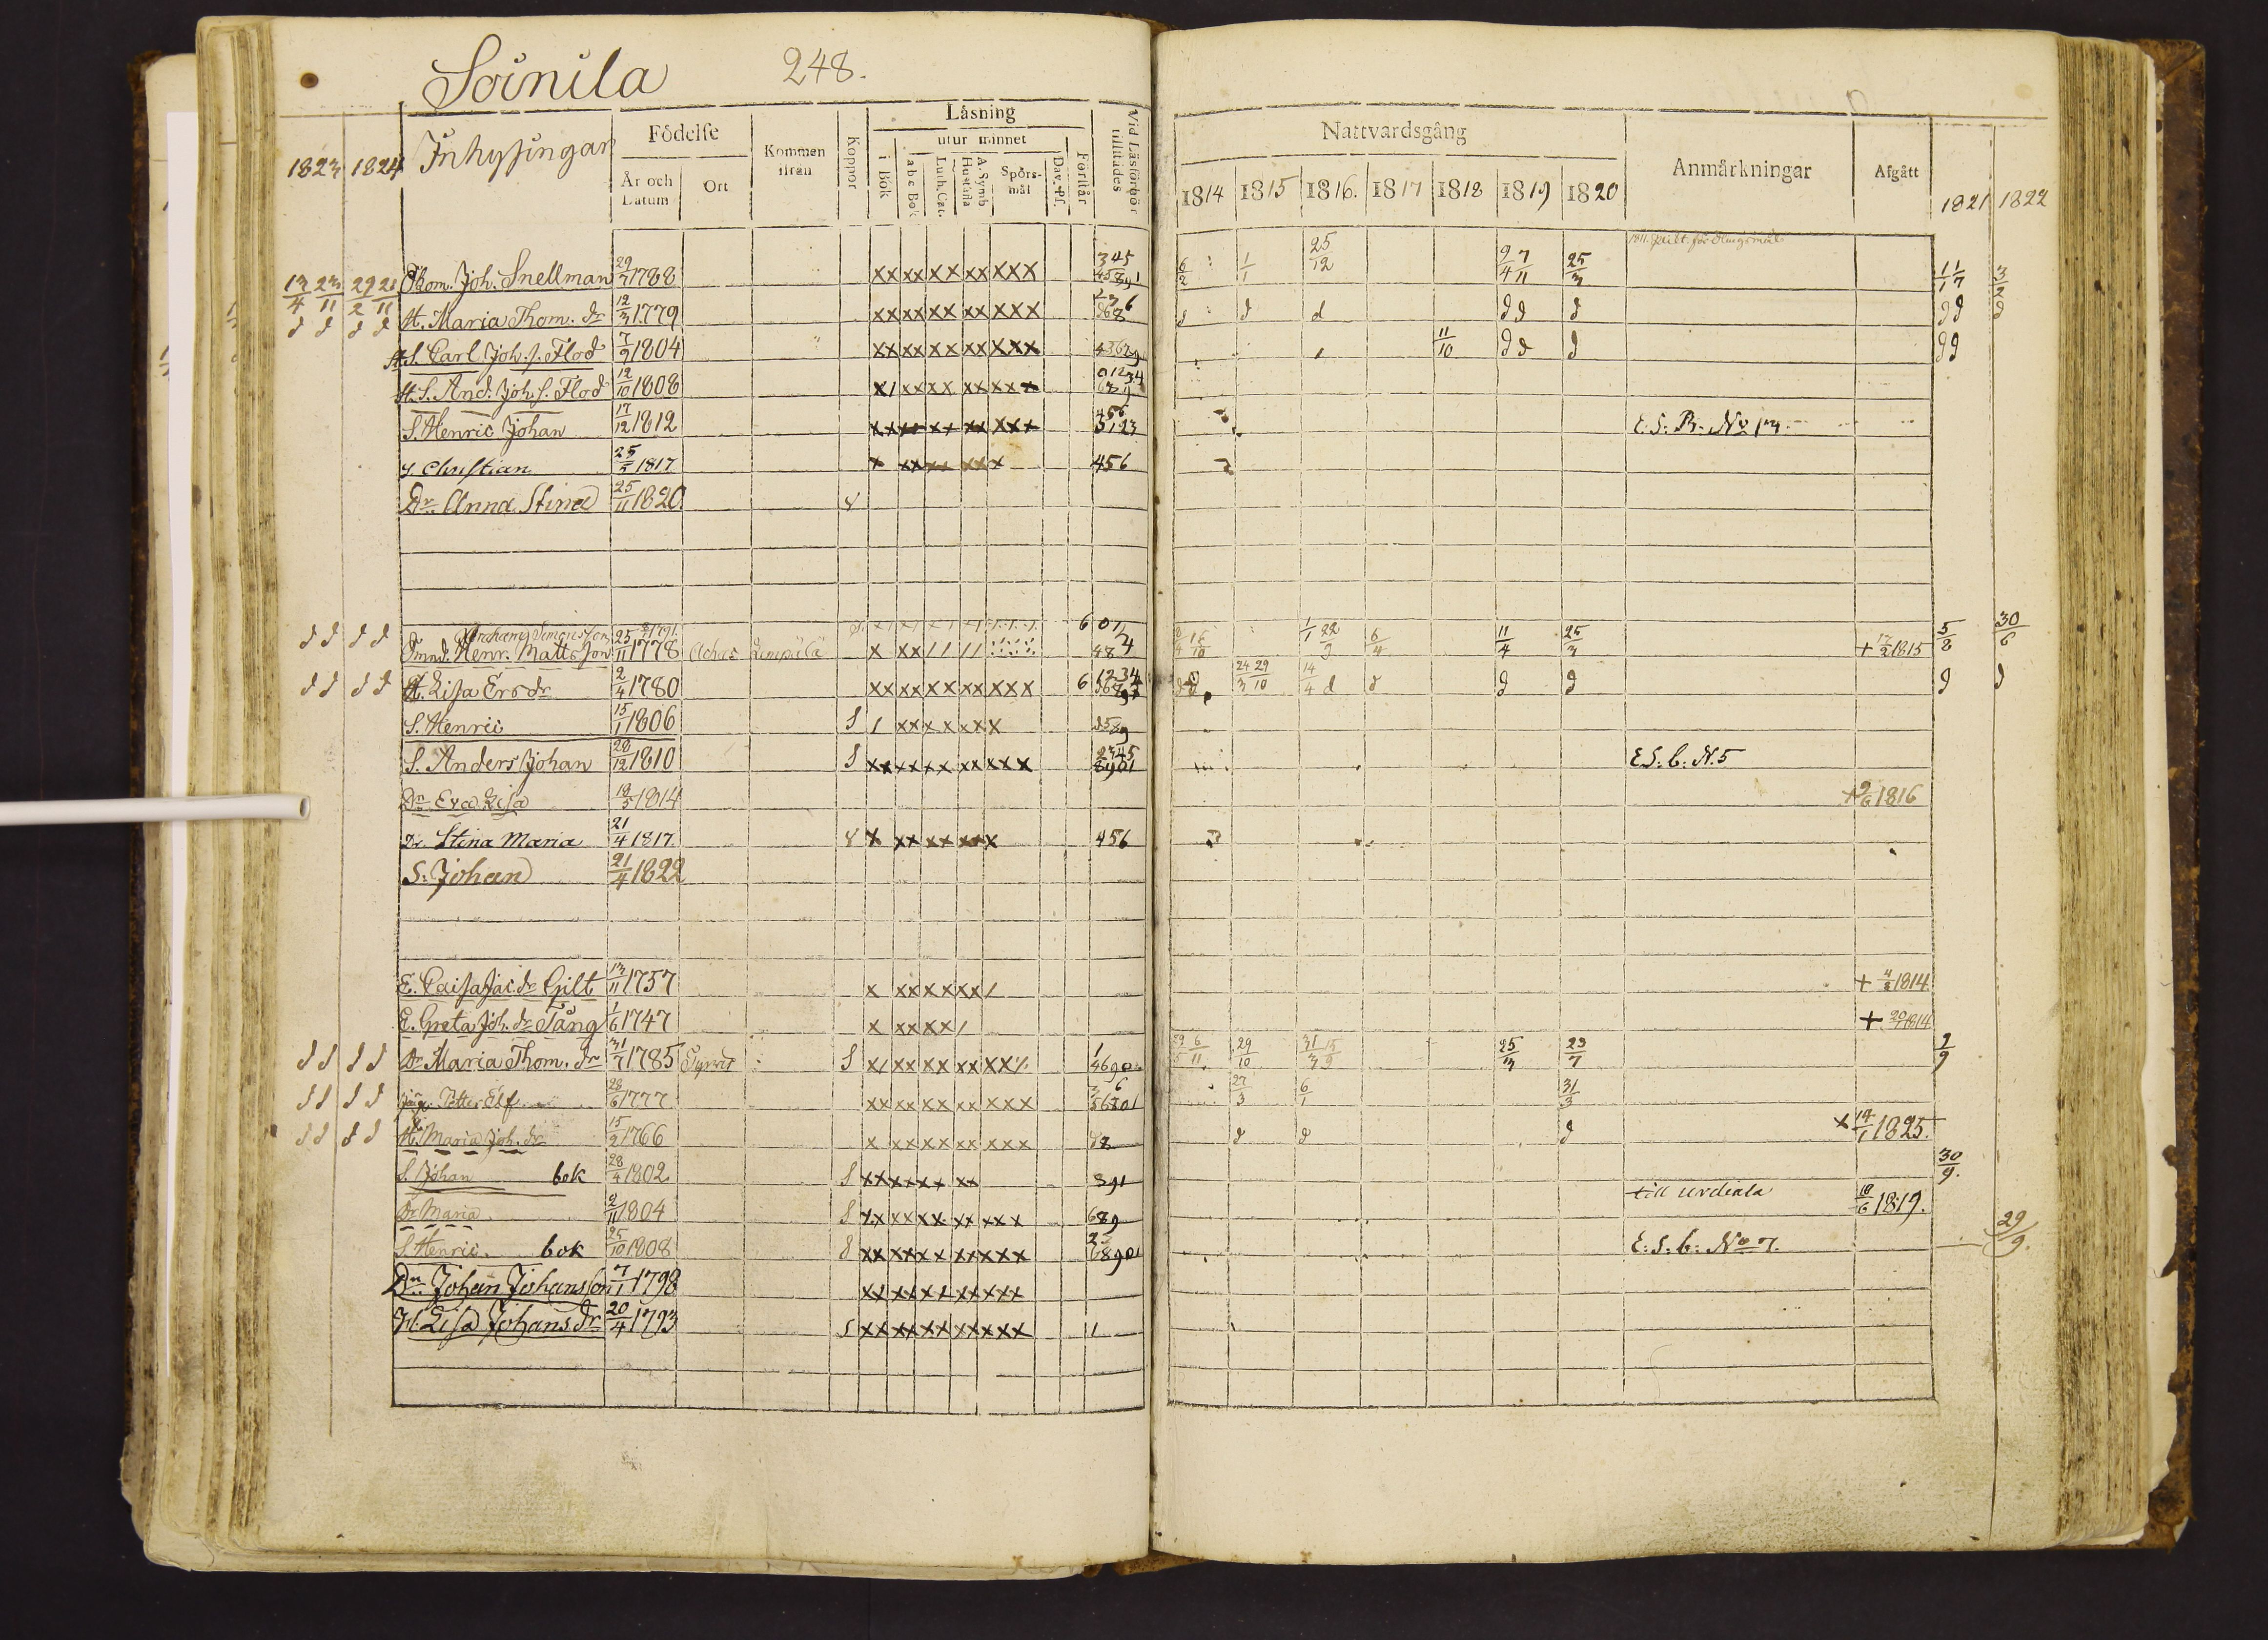 Soinila 248.
Inhysingar
1823 1824
Födelse
År och Datum
Ort
Kommen ifrån
Koppor
Läsning
i Bok
utur minnet
a b c Bok
Luth. Cat.
A. Symb Hustafla
Spörs-mål
Dav. Ps.
Förstår
Vid Läseförhör tillstädes
Nattvardsgång
1814 1815 1816. 1817 1818 1819 1820
Anmärkningar
Afgått
1821 1822
13/4 23/11 29/2 21/11 Thom. Joh. Snellman 29/3 1788 xx xx xx xx xxx 345 6/2 1/1 25/12 9/4 7/11 25/3 1/1 1/7 3/2
d d d d H. Maria Thom. dr 12/3 1779 xx xx xx xx xxx d d d d d d d d
H.S. Carl Joh. s. Flod 7/9 1804 xx xx xx xx xxx 11/10 d d d d d
H.S. And. Joh. s. Flod 12/10 1808 x/ xx xx xx xxx 01234
S. Henric Johan 17/12 1812 xx xx xx xx xxx 456 5123 E. S. B. No 14
S. Christian 25/5 1817 x xx xx xx x 456
Dr. Anna Stina 25/11 1820
Abraham Simonsson 1791 601
d d d d Henr. Matts son 25/11 1778 Achas Lempälä x xx // // 1/1 22/9 6/4 11/4 25/3 + 17/2 1815 5/8 30/6
d d d d H. Lisa Ers dr 2/4 1780 xx xx xx xx xxx 6 1234 24/3 29/10 14/4 d d d d d d
S. Henric 15/1 1806 S / xx xx xx x
S. Anders Johan 28/12 1810 S xx xx xx xx xxx 2345 8901 E S. b. N. 5
Dr. Eva Lisa 18/5 1814 + 9/6 1816
Dr. Stina Maria 21/4 1817 x xx xx xx x 456
S. Johan 21/4 1822
E. Caisa Jac. dr Gilt 13/11 1757 x xx xx xx / + 4/8 1814
E. Greta Joh. dr Tång 1/6 1747 x xx xx / + 20/7 1814
d d d d Dr Maria Thom. dr 31/7 1785 S x/ xx xx xx xx 29/5 6/11 29/10 31/3 15/9 25/3 23/7 2/9
d d d d Petter Elf 28/6 1777 xx xx xx xx xxx 27/3 6/1 31/3
d d d d H. Maria Joh. dr 15/2 1766 x xx xx xx xxx d d d x 14/1 1825.
S. Johan bok 28/4 1802 S xx xx xx xx 391 30/9.
Dr Maria 2/11 1804 S xx xx xx xx xxx 689 till Urdiala 18/6 1819.
S. Henric. bok 25/10 1808 S xx xx xx xx xxx 68901 E. S. b. No 7. 29/9.
Dn Johan Johansson 7/1 1798 xx xx xx xx xxx
H. Lisa Johans dr 20/4 1793 S xx xx xx xx xxx 11